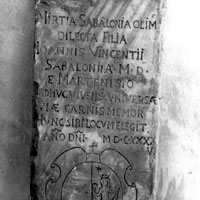 TIRTIA SABALONIA OLIM
DILECTA FILIA
IOANNIS VINCENTII
SABALONIIA M.D.
E MARTENISIO
ADHVC VIVENS VNIVERSÆ
VIÆ CARNIS MEMOR
HVNC SIBI LOCVM ELEGIT
AÑO DÑI M.D.C.XXX
V